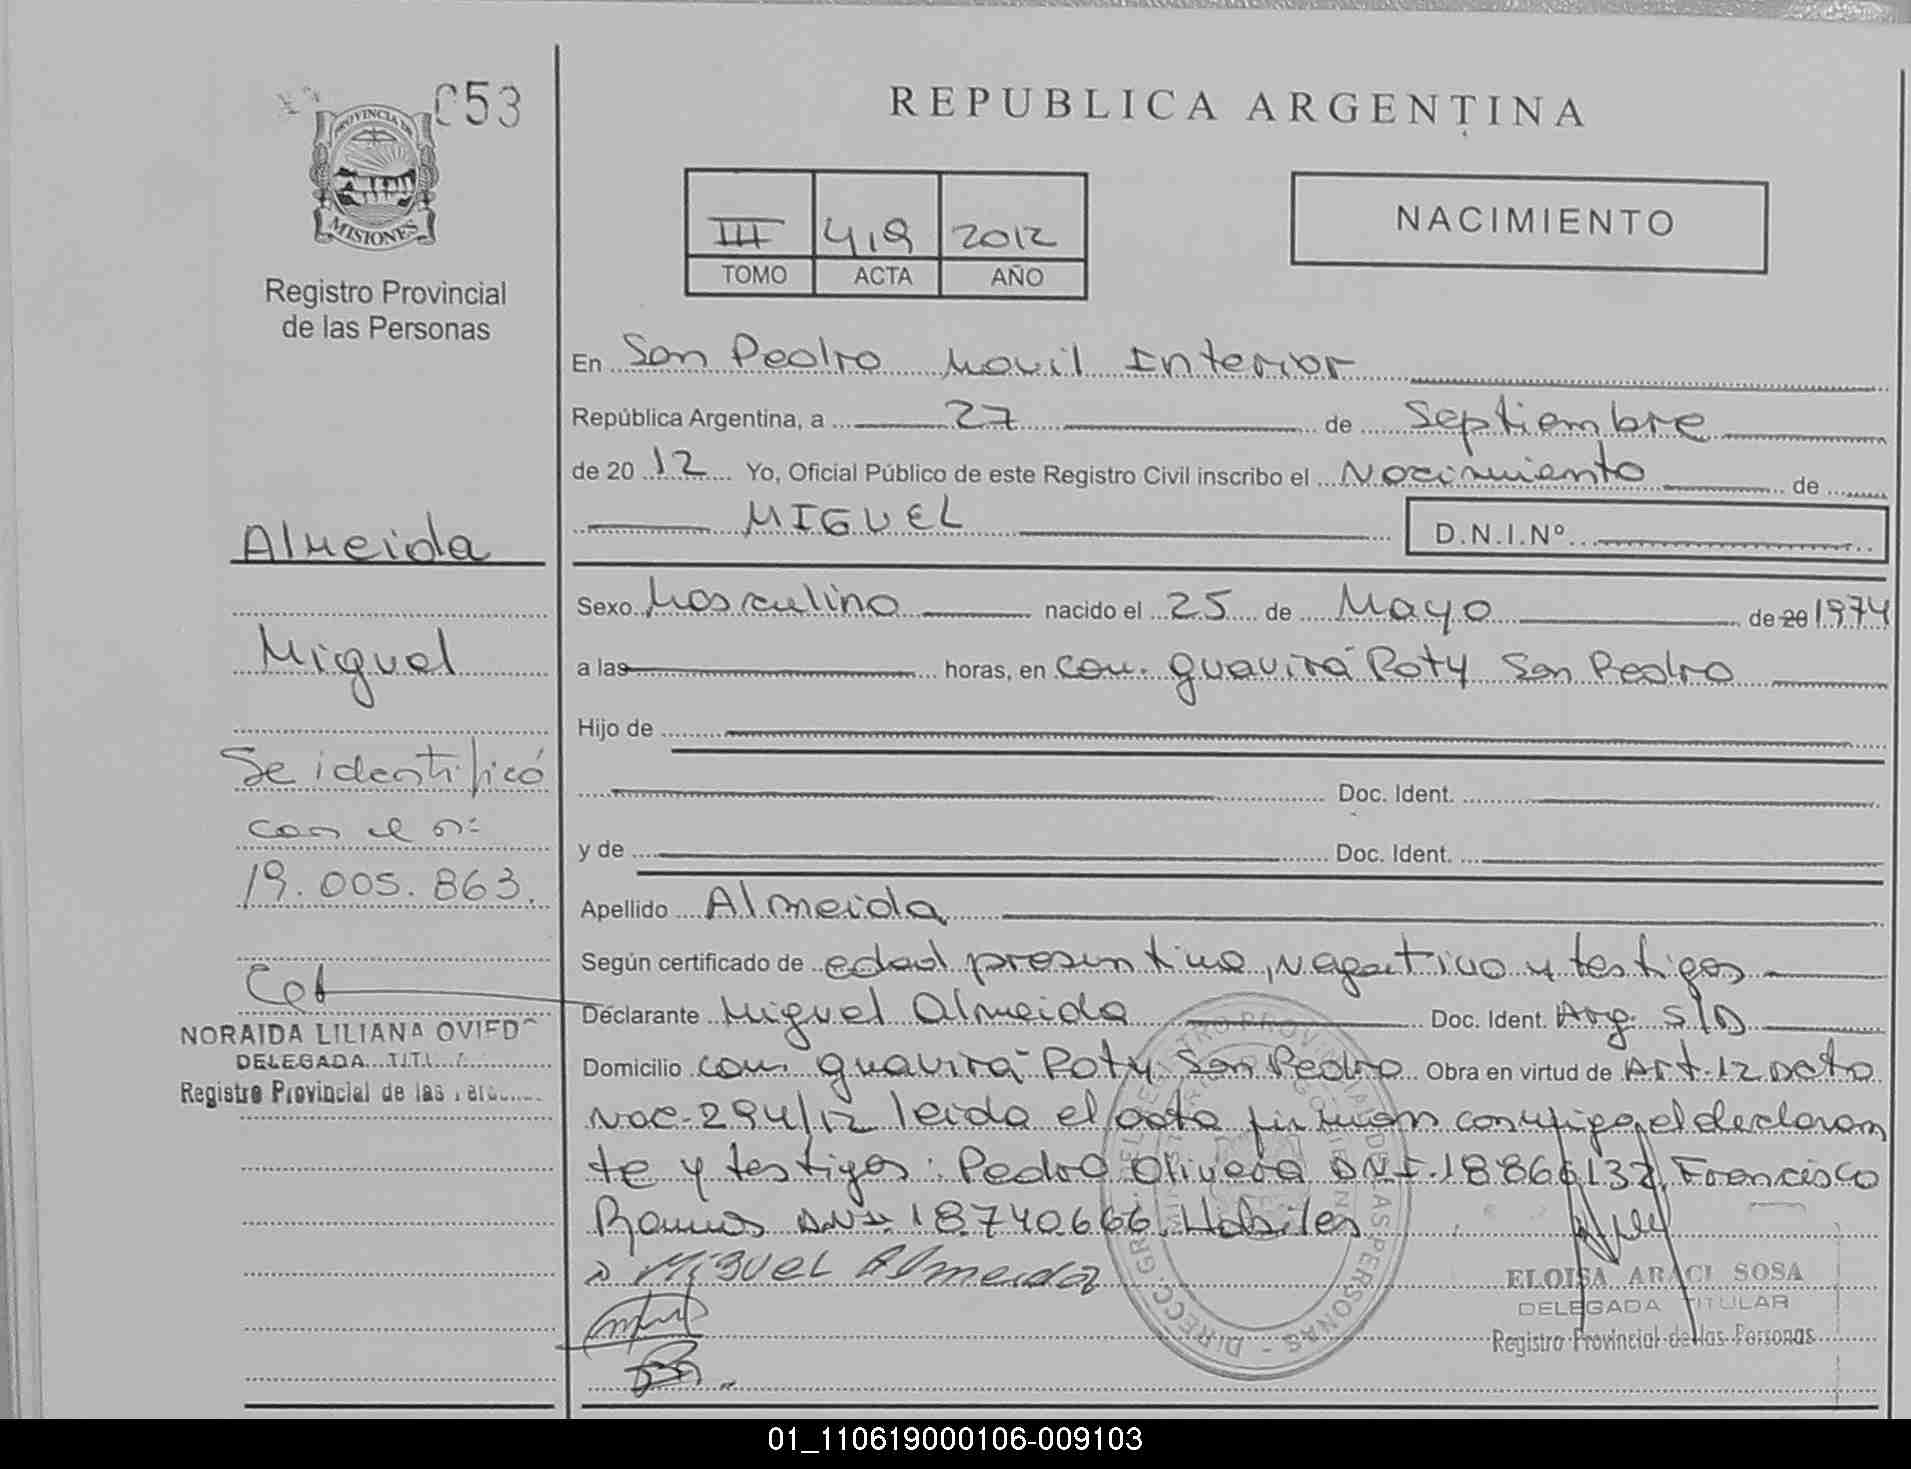 053
PROVINCIA DE
MISIONES
Registro Provincial
de las Personas
REPUBLICA ARGENTINA
III 419 2012
TOMO ACTA AÑO
NACIMIENTO
En San Pedro Movil Interior
República Argentina, a 27 de Septiembre
de 2012 Yo, Oficial Público de este Registro Civil inscribo el Nacimiento de
MIGUEL D.N.I.Nº
Sexo Masculino nacido el 25 de Mayo de 20 1974
a las horas, en com. guavirá Poty San Pedro
Hijo de
Doc. Ident.
y de Doc. Ident.
Apellido Almeida
Según certificado de edad presuntiva, Negativo y testigos
Declarante Miguel Almeida Doc. Ident. Arg. S/D
Domicilio com. guavirá Poty San Pedro Obra en virtud de Art. 12 Dcto
Nac. 294/12 leida el acta firman conmigo, el declaran
te y testigos: Pedro Olivera DNI. 18866132, Francisco
Ramos DNI. 18.740.666. Habiles
Miguel Almeida
ELOISA ARACI SOSA
DELEGADA TITULAR
Registro Provincial de las Personas
Almeida
Miguel
Se identificó
con el nº
19.005.863.
NORAIDA LILIANA OVIEDO
DELEGADA TITL
Registro Provincial de las
01_110619000106-009103